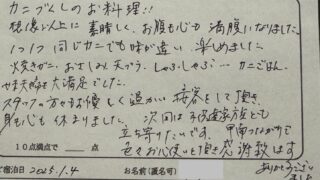 カニづくしのお料理!!
想像以上に素晴しく、お腹も心も満腹になりました。
1つ1つ同じカニでも味が違い、楽しめました
焼きがに、おさしみ天ぷら、しゃぶしゃぶ…カニごはん、
夫婦も大満足でした。
スタッフの方々も優しく温かい接客をして頂き、
身も心も休まりました。次回は家族とも
立ち寄りたいです。
色々お心使いを頂き感謝致します
ありがとうござい
ました
10点満点で 点
ご宿泊日 2025.1.4 お名前(匿名可)